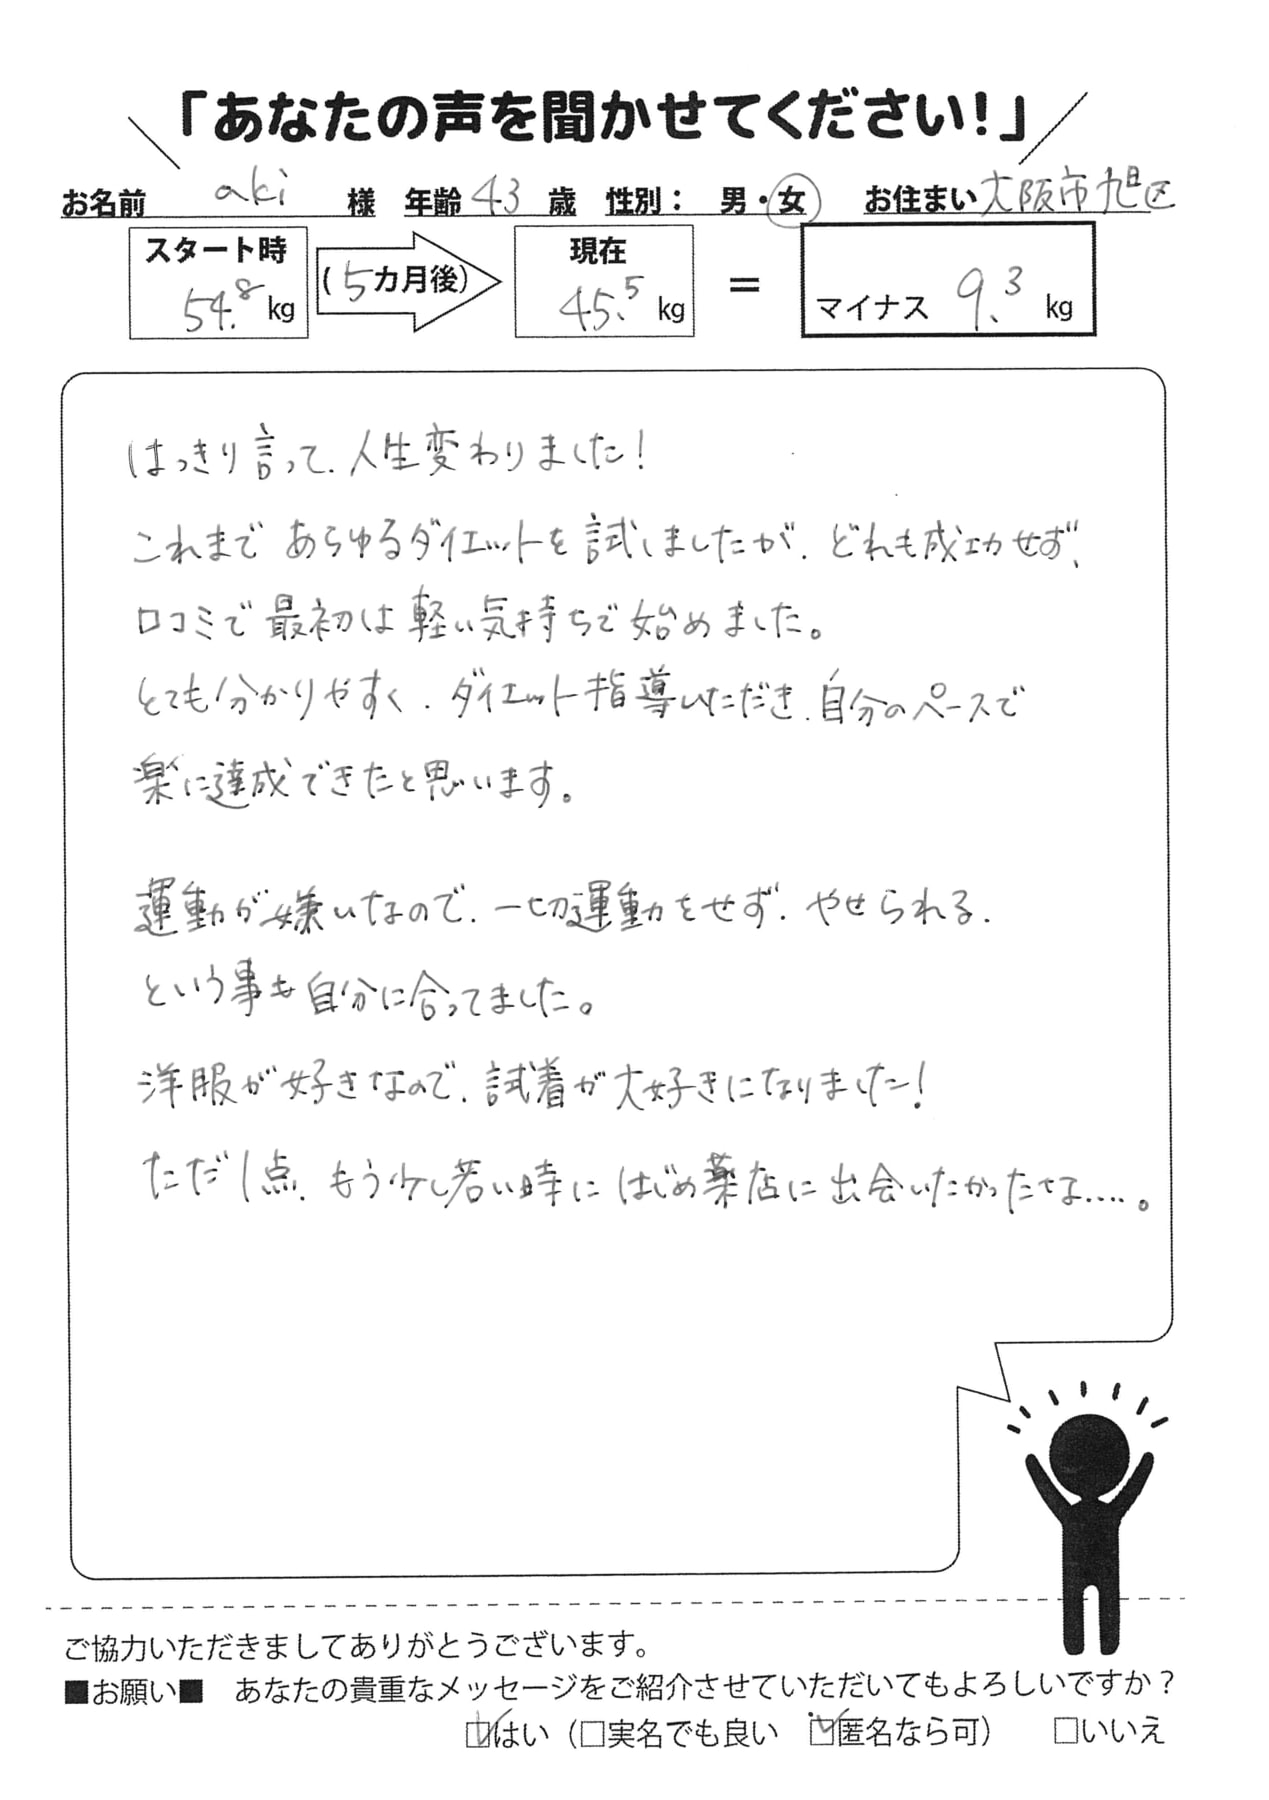 「あなたの声を聞かせてください！」
お名前 aki 様 年齢 43 歳 性別： 男・女 お住まい 大阪市旭区
スタート時 (5カ月後) 現在
54.8 kg 45.5 kg = マイナス 9.3 kg
はっきり言って、人生変わりました！
これまで あらゆるダイエットを 試しましたが、どれも成功せず、
口コミで 最初は 軽い気持ちで 始めました。
とても分かりやすく、ダイエット指導いただき、自分のペースで
楽に達成できたと思います。
運動が嫌いなので、一切運動をせず、やせられる、
という事も自分に合ってました。
洋服が好きなので、試着が大好きになりました！
ただ1点、もう少し若い時に はじめ薬店に 出会いたかったな....。
ご協力いただきましてありがとうございます。
■お願い■ あなたの貴重なメッセージをご紹介させていただいてもよろしいですか？
☑はい（□実名でも良い ☑匿名なら可） □いいえ